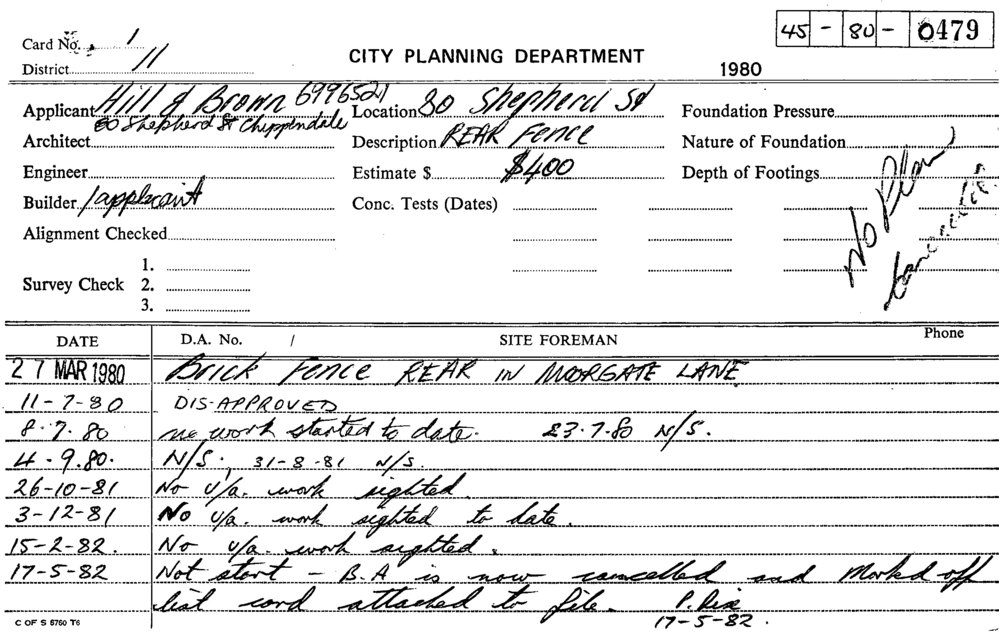 45 - 80 - 0479
Card No. 1
District 11
CITY PLANNING DEPARTMENT
1980
Applicant Hill & Brown 6996521
80 Shepherd St Chippendale
Location 80 Shepherd St
Foundation Pressure
Architect
Description REAR FENCE
Nature of Foundation
Engineer
Estimate $ $400
Depth of Footings
Builder /applicant
Conc. Tests (Dates)
No Plan
Alignment Checked
Survey Check
1.
2.
3.
DATE D.A. No. / SITE FOREMAN Phone
27 MAR 1980 Brick Fence REAR IN MOORGATE LANE
11-7-80 DIS-APPROVED
8.7.80 no work started to date. 23.7.80 N/S.
4.9.80. N/S. 31-8-81 N/S.
26-10-81 No u/a. work sighted.
3-12-81 No u/a. work sighted to date.
15-2-82. No u/a. work sighted.
17-5-82 Not start - B.A is now cancelled and Marked off
list card attached to file. P. Dix
17-5-82.
C OF S 5760 T6